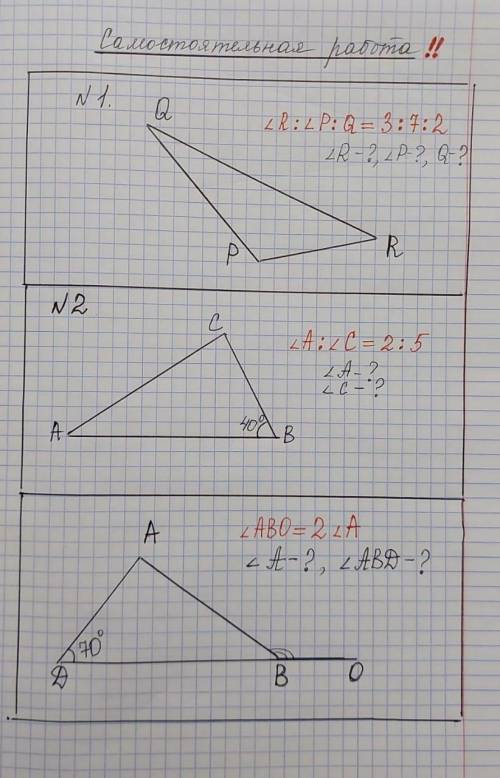 Самостоятельная работа !!
N 1.
Q
∠R:∠P:Q = 3:7:2
∠R-?, ∠P-?, Q-?
P
R
N 2
C
∠A:∠C = 2:5
∠A-?
∠C-?
A
40°
B
A
∠ABO = 2∠A
∠A-?, ∠ABD-?
70°
D
B
O